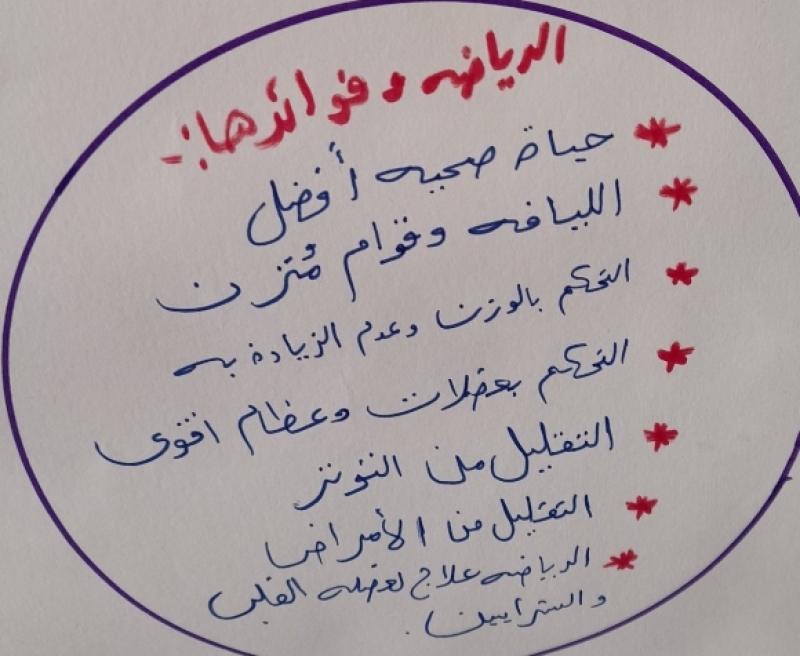 الرياضه وفوائدها:-
* حياة صحيه أفضل
* اللياقه وقوام مُتزن
* التحكم بالوزن وعدم الزيادة به
* التحكم بعضلات وعظام اقوى
* التقليل من التوتر
* التقليل من الأمراض
* الرياضه علاج لعضله القلب
والشرايين.